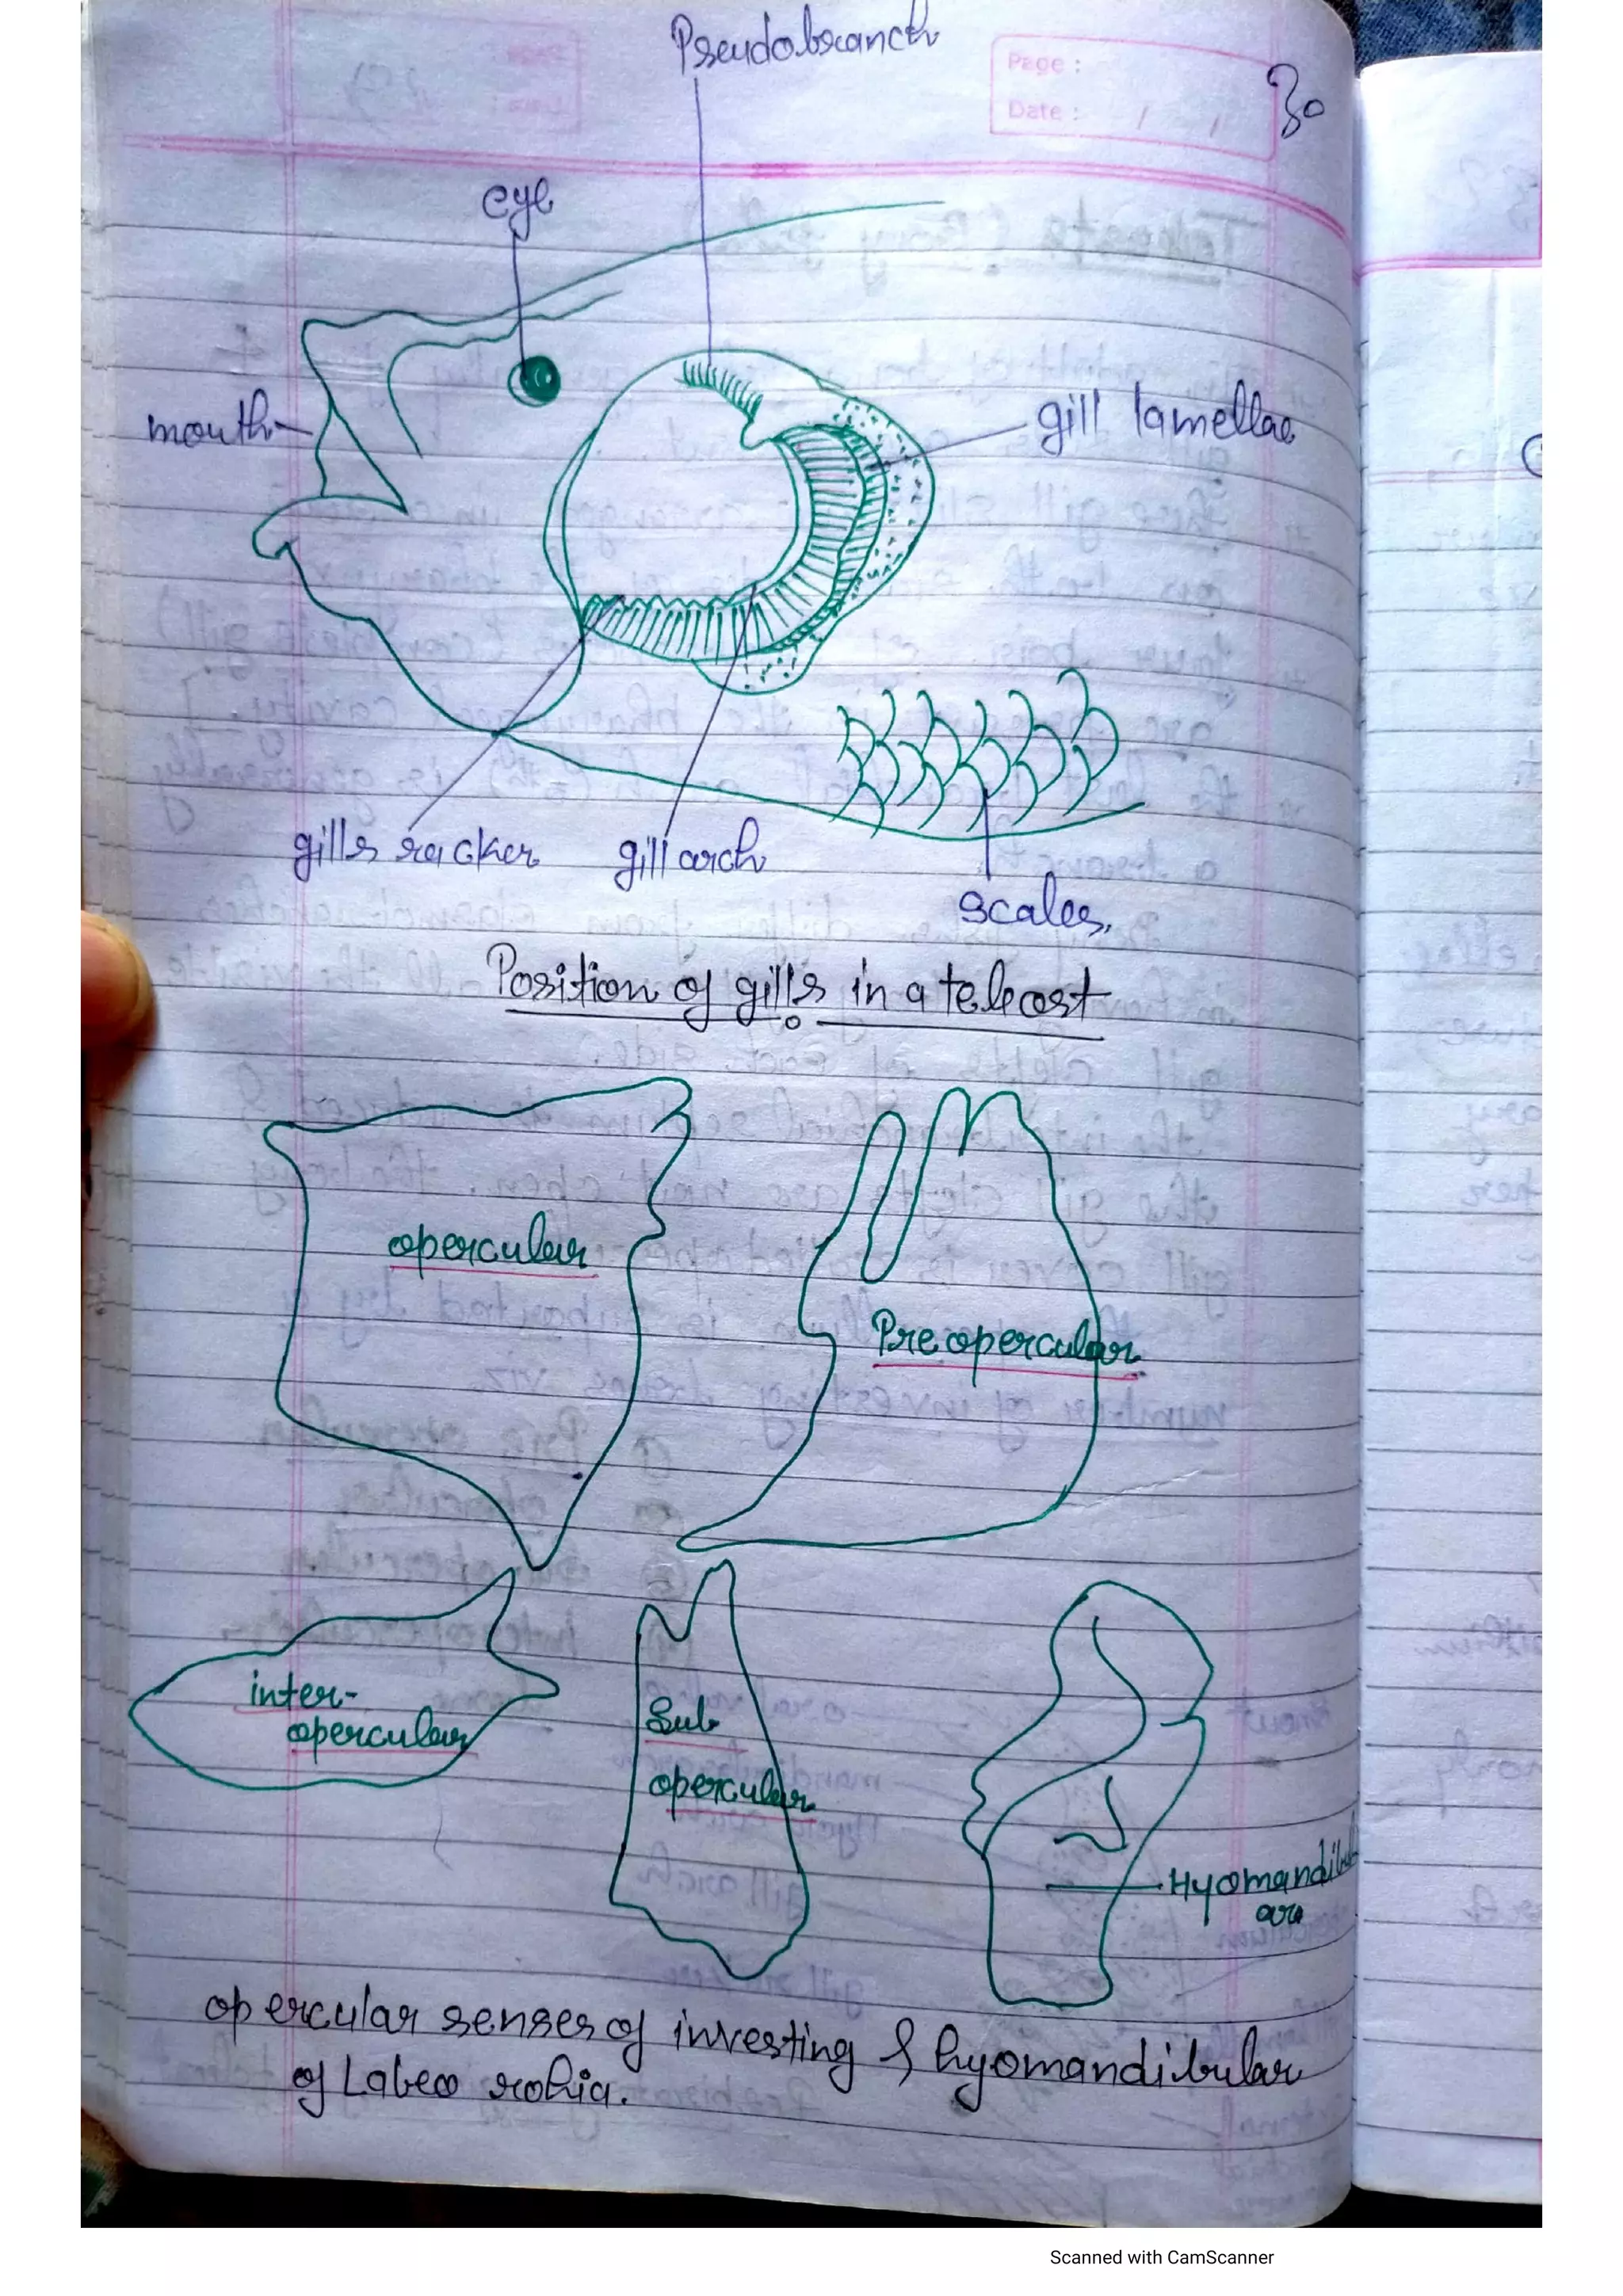 Pseudobranch
Page :
Date : / /
30
eye
mouth
gill lamellae
gills racker
gill arch
scales.
Position of gills in a teleost
opercular
Pre opercular
inter-
opercular
Sub
opercular
Hyomandibul
ar
opercular senses of investing & hyomandibular
of Labeo rohia.
Scanned with CamScanner